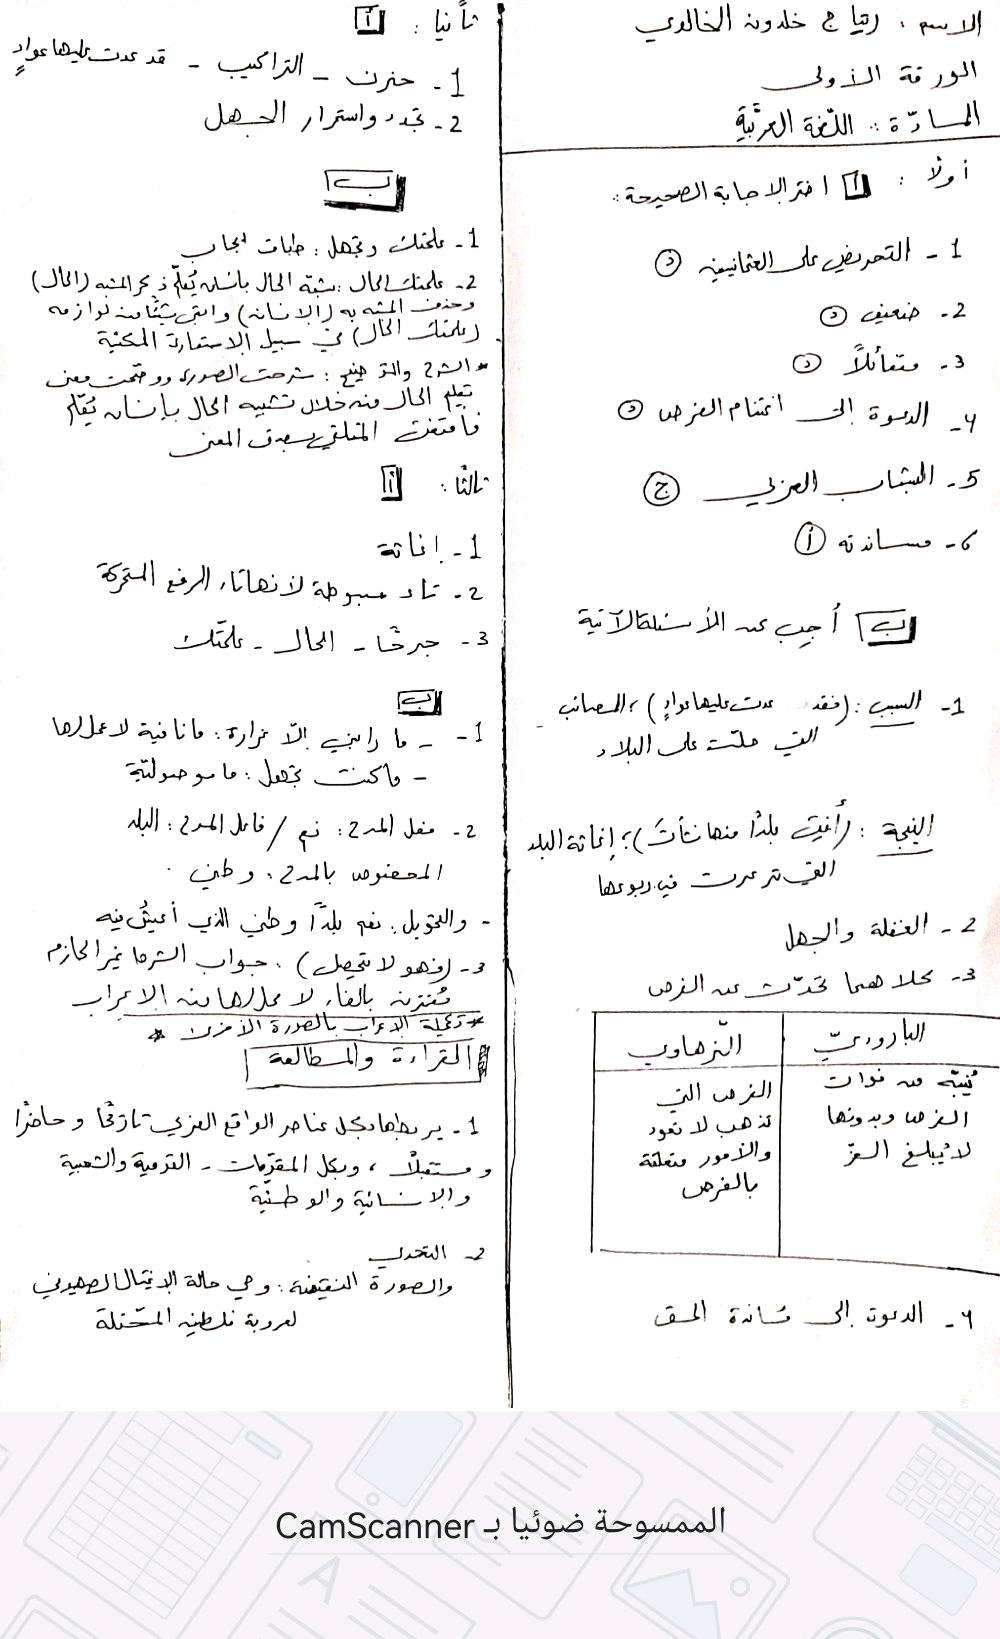 الاسم : رتاج خلدون الخالدي
الورقة الأولى
المادّة : اللّغة العربيّة
أولًا : أ اختر الإجابة الصحيحة :
1 - التحريض على العثمانيين د
2- ضعيف د
3- متفائلًا د
4- الدعوة إلى اغتنام الفرص د
5- الشباب العربي ج
6- مساندته أ
ب أجب عن الأسئلة الآتية
1- السبب : (فقد عدت عليها عوادٍ) ؛ المصائب
التي حلّت على البلاد
النتيجة : (أغيث بلدًا منها نشأتَ) ؛ إغاثة البلد
التي ترعرت في ربوعها
2- الغفلة والجهل
3- كلاهما تحدّث عن الفرص
الباروديّ
الزهاوي
يُنبّه من فوات
الفرص وبدونها
لا يُبلغ العزّ
الفرص التي
تذهب لا تعود
والأمور متعلقة
بالفرص
4- الدعوة إلى مساندة الحق
ثانيا : أ
1- حزن - التراكيب - قد عدت عليها عوادٍ
2- تجدد واستمرار الجهل
ب
1- علمتك وتجهل : طباق إيجاب
2- علمتك الحال : شبّه الحال بإنسان يُعلّم ذكر المشبه (الحال)
وحذف المشبه به (الإنسان) وابقى شيئًا من لوازمه
(علمتك الحال) في سبيل الاستعارة المكنية
* الشرح والتوضيح : شرحت الصورة ووضّحت معنى
تعليم الحال من خلال تشبيه الحال بإنسان يُعلّم
فاقتنع المتلقي بصدق المعنى
ثالثًا : أ
1- إغاثة
2- تاء مبسوطة لأنها تاء الرفع المتحركة
3- جرحًا - الحال - علمّتك
ب
1- - ما رابني إلّا غرارة : ما نافية لا عمل لها
- ما كنت تجهل : ما موصوليّة
2- فعل المدح : نعم / فاعل المدح : البلد
المخصوص بالمدح : وطني
- والتحويل : نعم بلدًا وطني الذي أعيشُ فيه
3- (فهو لا تحصل) : جواب الشرط غير الجازم
مُقترن بالفاء لا محل لها من الإعراب
* تكملة الإعراب بالصورة الأخرى *
القراءة والمطالعة
1- يربطها بكل عناصر الواقع العربي تاريخًا وحاضرًا
ومستقبلًا ، وبكل المقوّمات - القومية والشعبية
والإنسانية والوطنيّة
2- التحدي
والصورة النقيضة : وهي حالة الاغتيال الصهيوني
لعروبة فلسطين المحتلة
الممسوحة ضوئيا بـ CamScanner